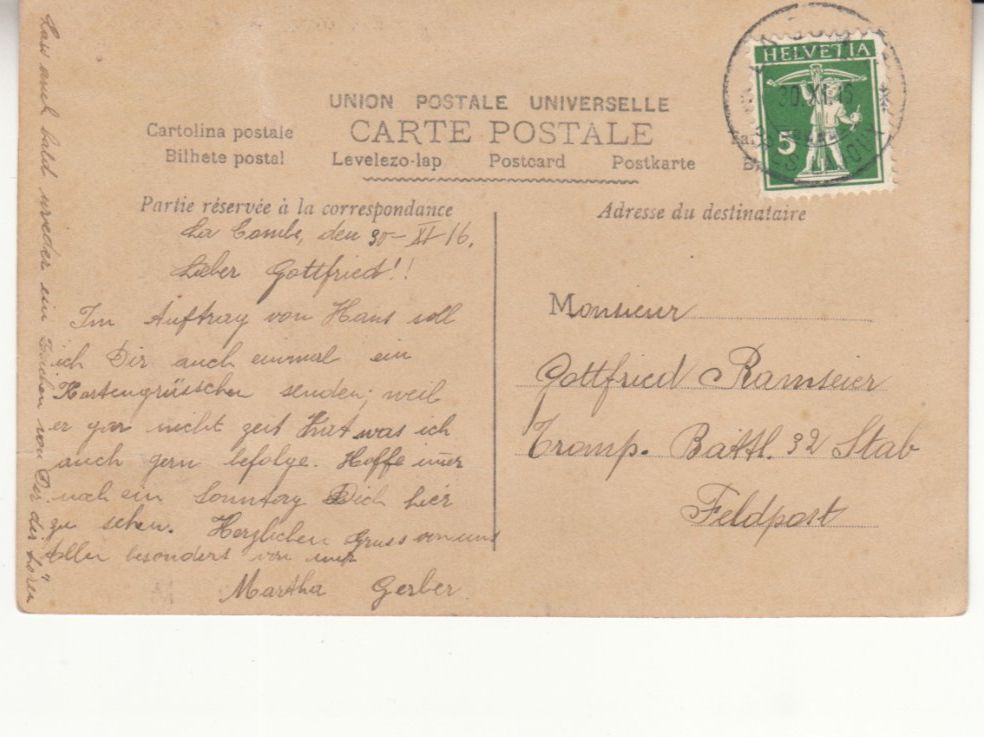 UNION POSTALE UNIVERSELLE
CARTE POSTALE
Cartolina postale
Bilhete postal Levelezo-lap Postcard Postkarte
HELVETIA
30.XI.16
5
Partie réservée à la correspondance
Adresse du destinataire
La Combe, den 30-XI 16.
Lieber Gottfried!!
Im Auftrag von Hans soll
ich Dir auch einmal ein
Kartengrüsschen senden; weil
er gar nicht zeit hat was ich
auch gern befolge. Hoffe
noch ein Sonntag Dich hier
zu sehen. Herzlichen Gruss von uns
Allen besonders von mir
Martha Gerber
Lass auch bald wieder ein Zeichen von Dir hören
Monsieur
Gottfried Ramseier
Tromp. Battl. 32 Stab
Feldpost